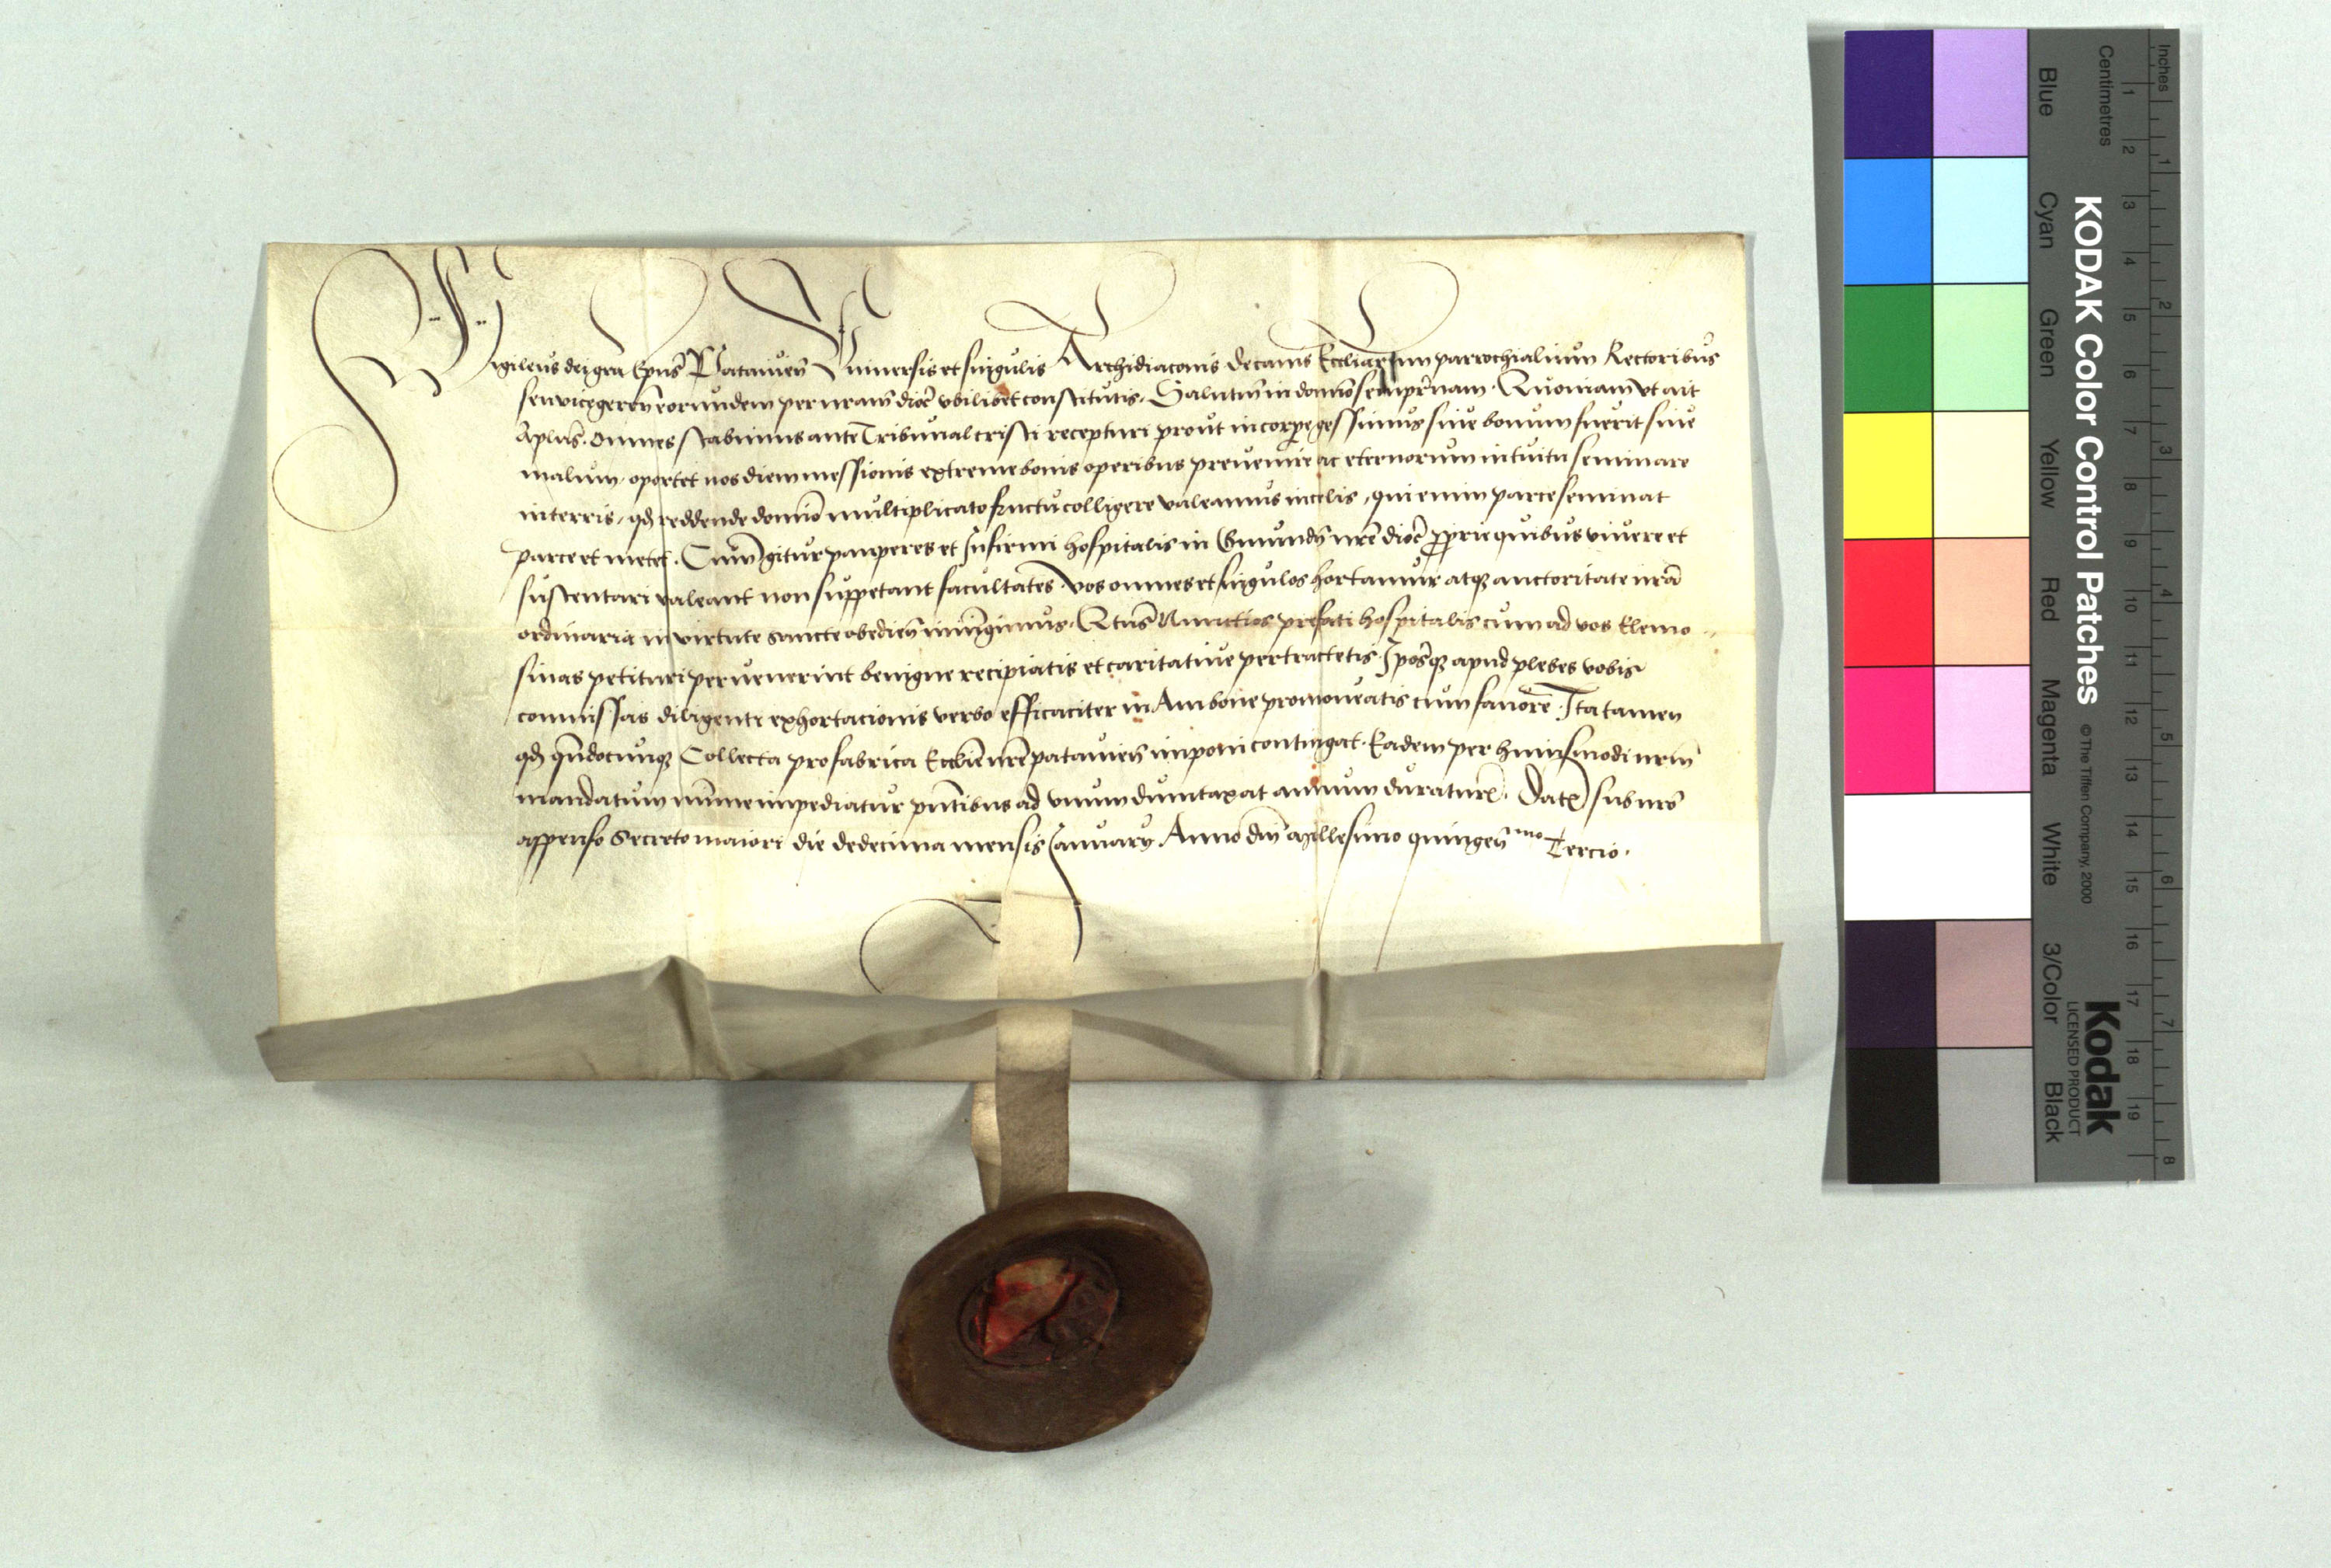 Vigileus dei gra͞ Ep͞us Patauien̄ Vniuersis et singulis Archidiaconis Decanis Eccliarum parrochialium Rectoribus
seu vicegeren̄ eorundem per nr̄am dioc̄ vbilibet constitutis. Salutem̄ in domi͞o sempitērnam. Quoniam vt ait
Ap͞lus. omnes stabimus ante Tribunal cristi recepturi prout in corpe gessimus siue bonum fuerit siue
malum. oportet nos diem messionis extreme bonis operibus preuenire ac eternorum intuitu seminare
in terris, qd̄ reddende domi͞o multiplicato fructu colligere valeamus in celis, qui enim parce seminat
parce et metet. Cum Igitur pauperes et Infirmi hospitalis in Gmundn̄ nr̄e dioc̄ pprie quibus viuere et
sustentari valeant non suppetant facultates. vos omnes et singulos hortamur atqz auctoritate nr̄a
ordinaria in virtute sancte obedien̄ iniungimus. Qtus̄ Nunctios prefati hospitalis cum ad vos Elemo=
sinas petituri peruenerint benigne recipiatis et caritatiue pertractetis. Iposqz apud plebes vobis
commissas diligenti exhortacionis verbo efficaciter in Ambone promoueatis cum fauore. Ita tamen
qd̄ qn̄docunqz Collecta pro fabrica Eccl̄ie nr̄e patauien̄ imponi contingat. Eadem per huiusmodi nr̄m
mandatum mi͞me impediatur pn̄tibus ad vnum dumtaxat annum duraturꝭ. Datꝭ sub nr̄o
appenso Secreto maiori die dedecima mensis January Anno dn̄i Millesimo quingen̄ mo Tercio.
Inches
Centimetres
1 2 3 4 5 6 7 8 9 10 11 12 13 14 15 16 17 18 19
1 2 3 4 5 6 7 8
KODAK Color Control Patches © The Tiffen Company, 2000
Kodak
LICENSED PRODUCT
Blue Cyan Green Yellow Red Magenta White 3/Color Black